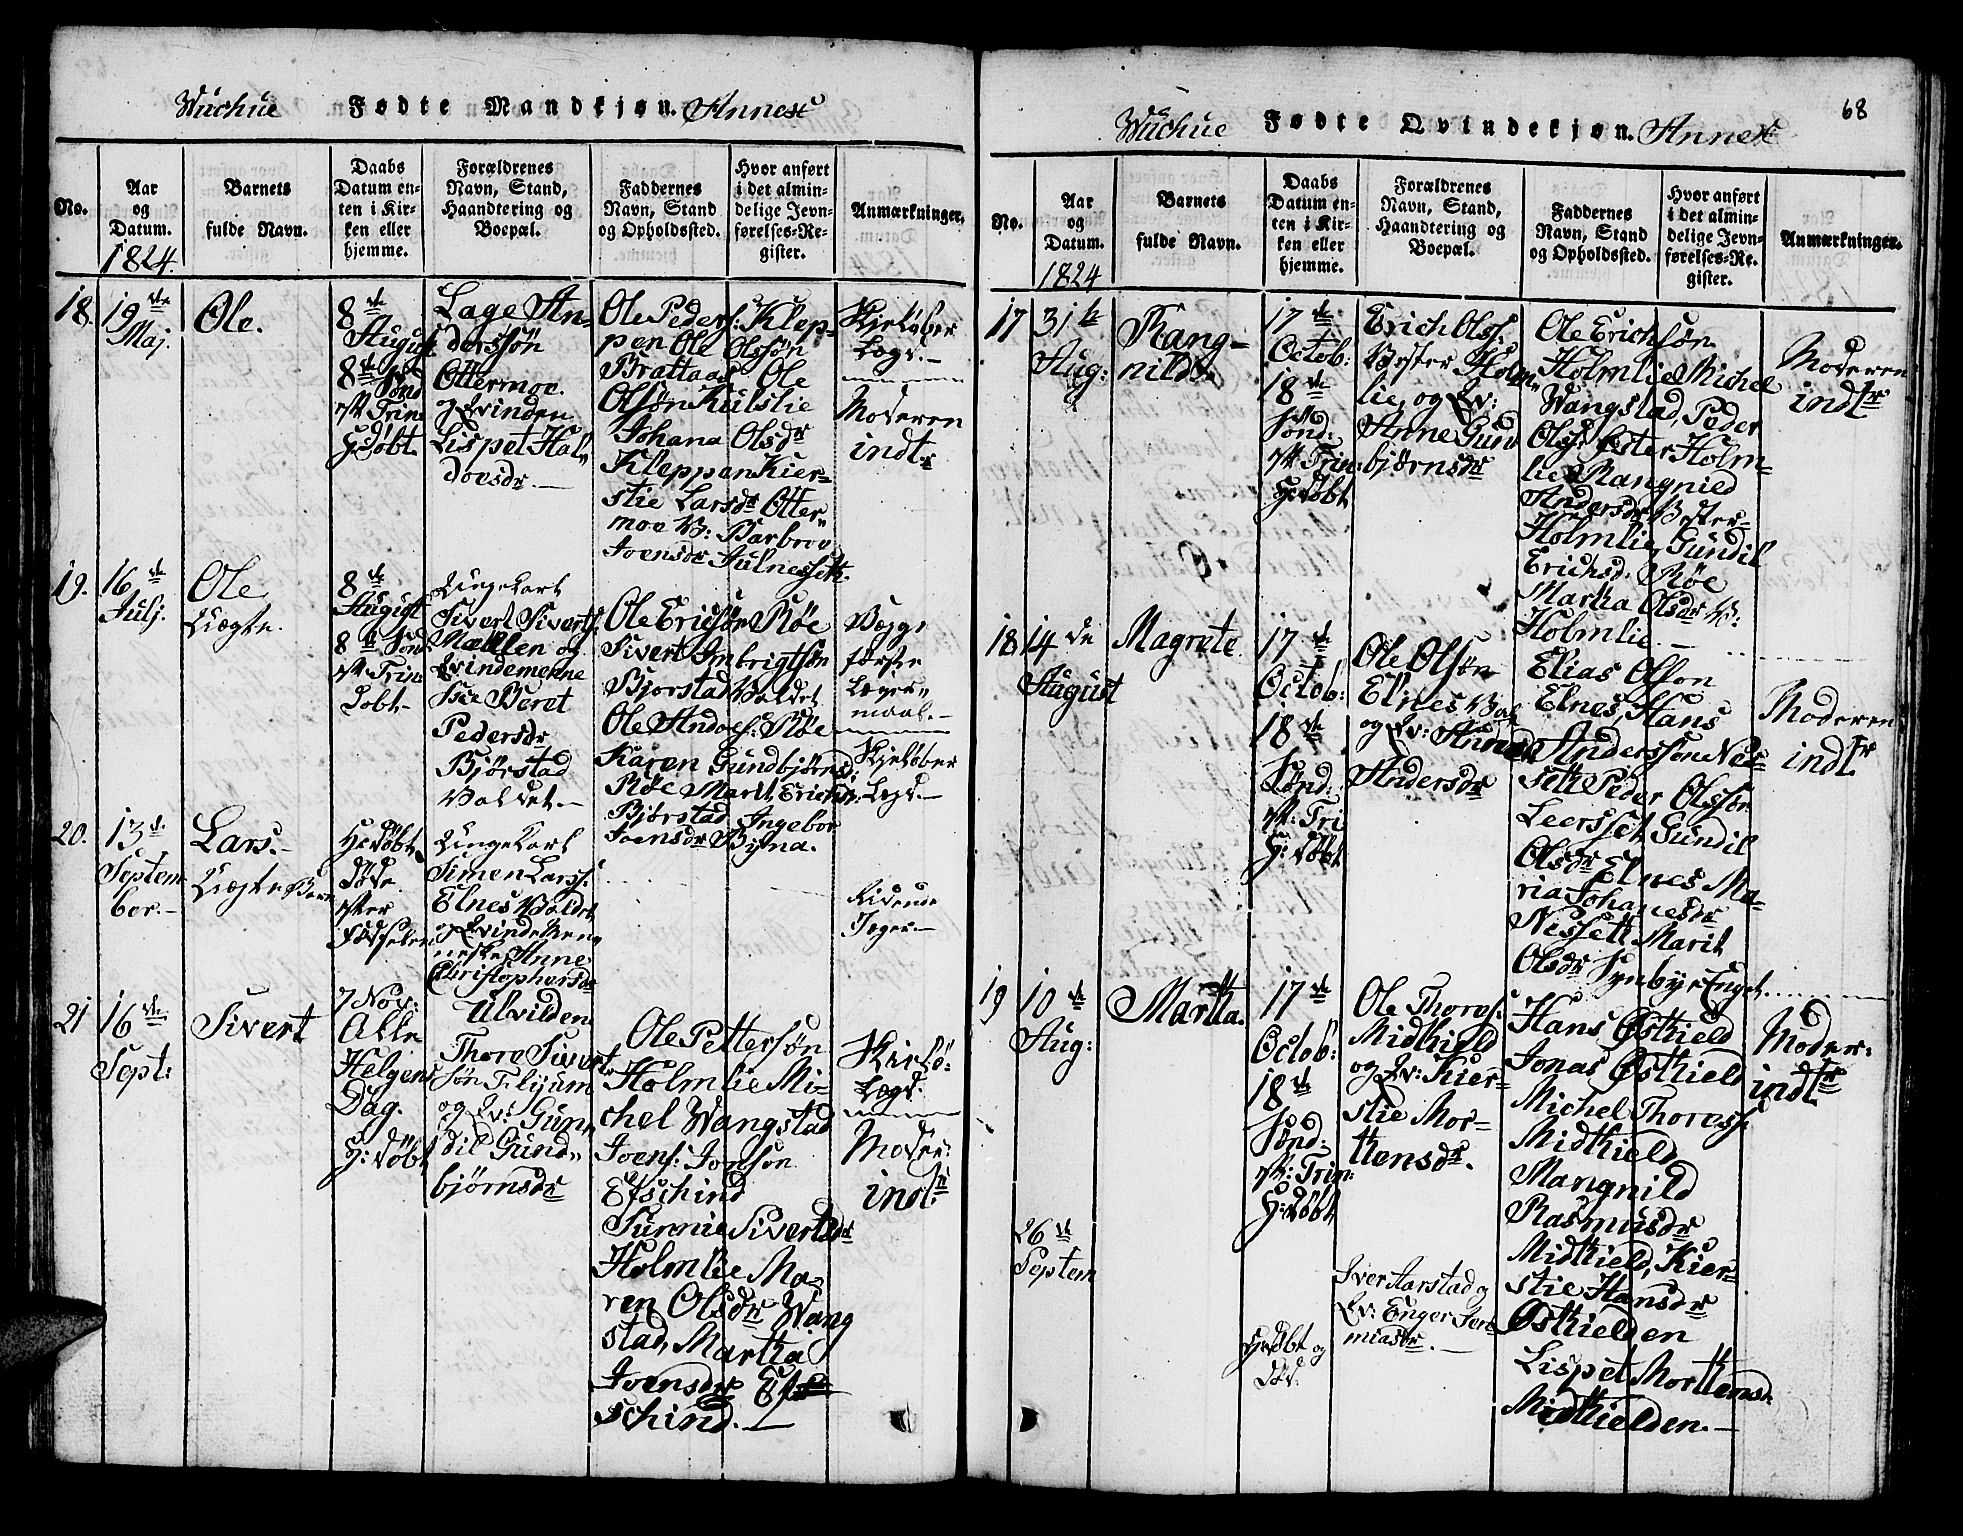 Wuchue Fødte Mandkjøn. Annext
No.
Aar
og
Datum.
1824.
Barnets
fulde Navn.
Daabs
Datum en-
ten i Kir-
ken eller
hjemme.
Forældrenes
Navn, Stand,
Haandtering og
Boepæl.
Faddernes
Navn, Stand
og Opholdssted.
Hvor anført
i det almin-
delige Jevn-
førelses-Re-
gister.
Anmærkninger.
18.
19de
Maj.
Ole.
8de
August
8de Sønd
Trin
H:døbt.
Lage An-
dersson
Ottermoe
og Qvinden
Lispet Hal-
dorsdr.
Ole Peders: Klep-
pen Ole Olssøn
Brattaas Ole
Olsøn Kulslie
Johana Olsdr
Kleppen Kier-
stie Larsdr Otter-
moe Barbroe
Joensdr Julnesseth.
Lægd.
Moderen
indtr
19.
16de
Julj.
Ole
Uægte.
8de
August
8de Sønd
Trin
Døbt
Ungekarl
Sivert Siverts:
Mællen og
Qvindemenne
Beret
Pedersdr
Bjørstad
Valdet.
Ole Ericsøn Røe
Sivert Imbrigtsøn
Bjorstad Valdet
Ole Andors: Røe
Karen Gundbjørnsd:
Røe Marit Erichsdr
Bjørstad Ingebor
Joensdr Byna.
Begge
første
Leier-
maal.
Lægd.
20.
13de
Septem
ber.
Lars.
Uægte Barn
H:døbt
døde
efter
Fødselen
Ungekarl
Simen Larss:
Elnes Valdet
og Qvinde Men
neske Anne
Christophersdr
Ulvilden
Ridende
Jæger.
21
16de
Sept:
Sivert
7 Nov:
Alle
Helgens
Dag.
H:døbt
Thore Sivert
søn Flyum
og Qv: Gun-
dil Gund-
bjørnsdr
Ole Pettersøn
Holmlie Mi-
chel Wangstad
Joens: Jonsøn
Efschind
Surrie Sivertsdr
Holmlie Ma-
ren Olsdr Wang
stad, Martha
Joensdr Ef
schind.
Lægd.
Moder:
indtr
68
Wuchue Fødte Qvindekjøn. Annext
No.
Aar
og
Datum.
1824
Barnets
fulde Navn.
Daabs
Datum en-
ten i Kir-
ken eller
hjemme.
Forældrenes
Navn, Stand,
Haandtering og
Boepæl.
Faddernes
Navn, Stand
og Opholdssted.
Hvor anført
i det almin-
delige Jevn-
førelses-Re-
gister.
Anmærkninger.
17
31te
Aug:
Rang-
nild.
17de
Octob:
18de
Sønd:
Trin.
H:døbt
Erich Olss:
Vester Holm-
lie, og Qv:
Anne Gun
bjørnsdr
Ole Erichsøn
Holmlie Michel
Wangstad, Peder
Olss: Øster Holm-
lie Rangnild
Andersdr Vester-
Holmlie, Gundil
Erichsd: Røe
Martha Olsdr V:
Holmlie
Moderen
indtr
18
14de
August
Magrete
17de
Octob:
18de
Sønd:
Tri
H:døbt
Ole Olsøn
Elnes Val
og Qv: Anne
Andersdr
Elias Olson
Elnes, Hans
Andersson Nes-
seth Peder Olssøn
Leersset Gundil
Olsdr Elnes Ma-
ria Johanesdr
Nesseth Marit
Olsdr Synbye Enget
Moderen
indtr
19
10de
Aug:
Martha.
17de
Octob:
18de
Sønd:
Trin
H:døbt
Ole Thores:
Midthield
og Qv: Kier-
stie Mor-
tensdr.
Hans Østhield
Jonas Østhield
Michel Thoress:
Midthield
Mangnild
Rasmusdr
Midthield, Kier-
stie Hansdr
Østhielden
Lispet Mortens.
Midthielden.
Moder:
indtr
26de
Septem
H:døbt og
død.
Iver Aarstad og
Qv: Enger Jere
miasdr.